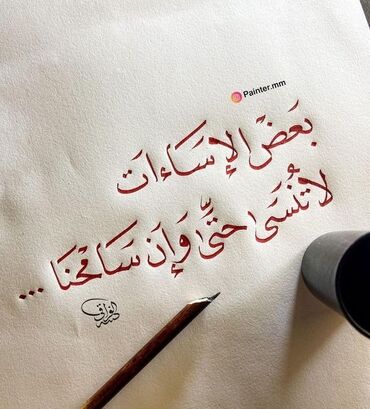 Painter.mm
بَعَضْ الإسَاءات
لاتُنسَى حتَّى وَإن سَامَحْنَا ...